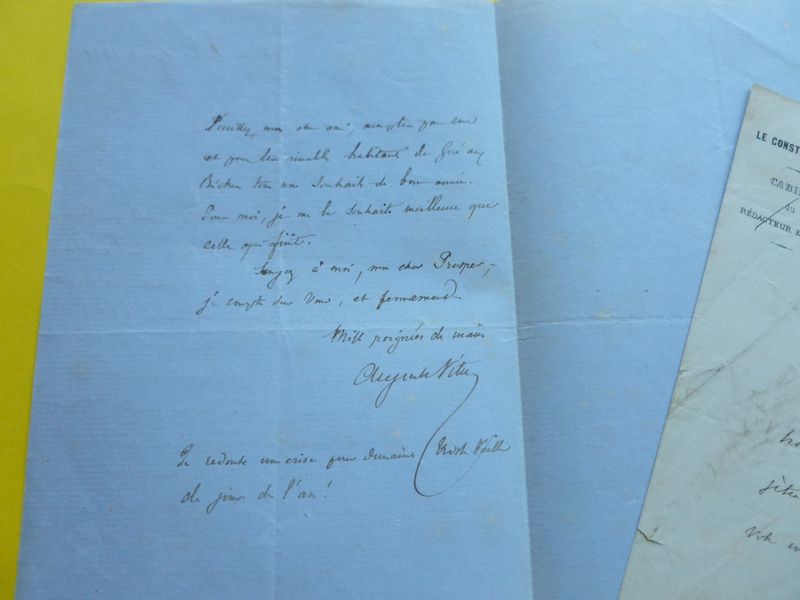 mon cher ami, acceptez pour vous
et pour les aimables habitants de
tous mes souhaits de bonne année.
Pour moi, je me la souhaite meilleure que
celle qui finit.
Songez à moi, mon cher Prosper,
je compte sur vous, et fermement.
Mille poignées de main
Auguste Vitu
Je redoute une crise pour demain
de jour de l'an!
LE CONST
CABI
du
RÉDACTEUR E